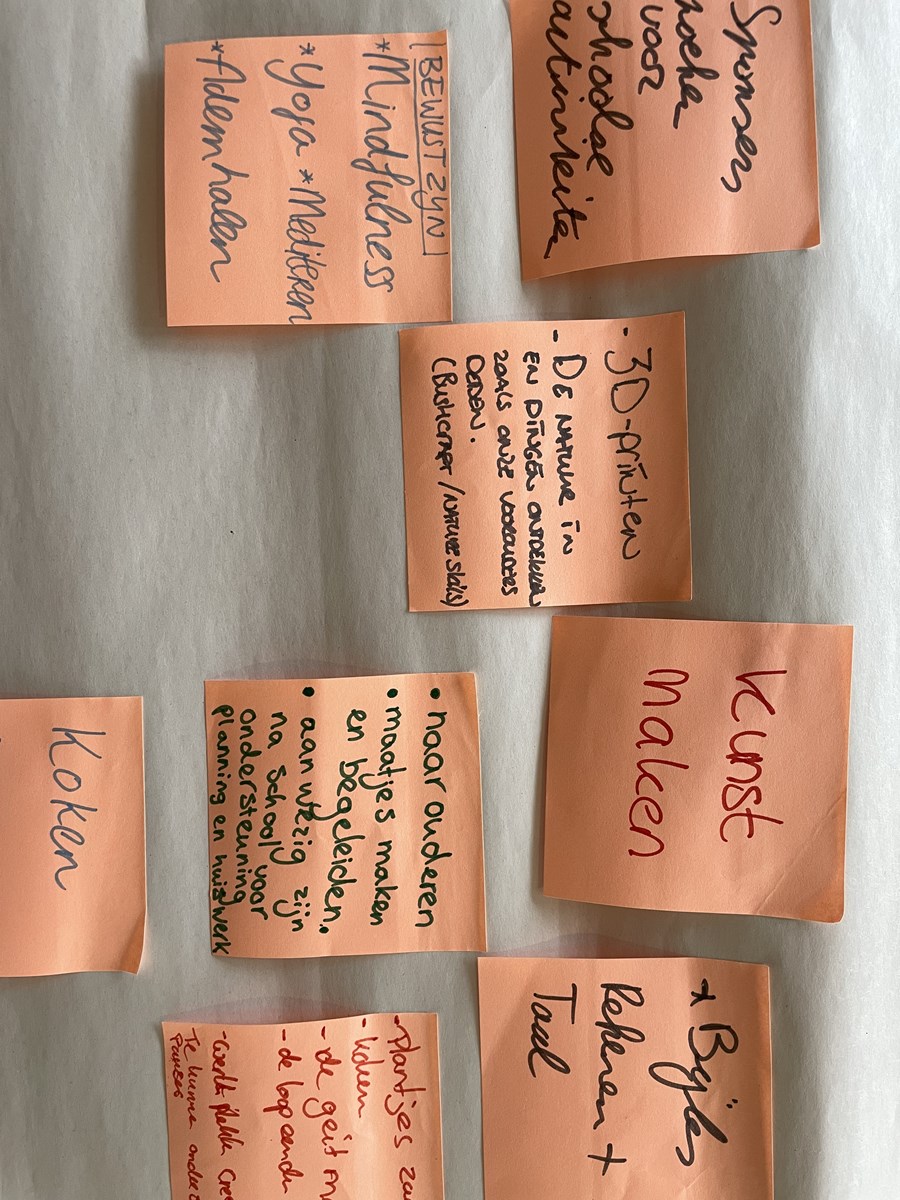 Sponsors
voor
| BEWUST ZYN |
*Mindfulness
*Yoga *Mediteren
*Ademhalen
- 3D-printen
- DE NATUUR IN
EN DINGEN ONTDEKKEN
ZOALS ONZE VOOROUDERS
DEDEN.
(BUSHCRAFT / NATURE Skills)
Kunst
maken
• naar ouderen
• maatjes maken
en begeleiden.
• aanwezig zijn
na school voor
ondersteuning
planning en huiswerk
Koken
* Bijles
Rekenen +
Taal
• Plantjes
- koken
- de geit
- de loopeende
Te kunnen